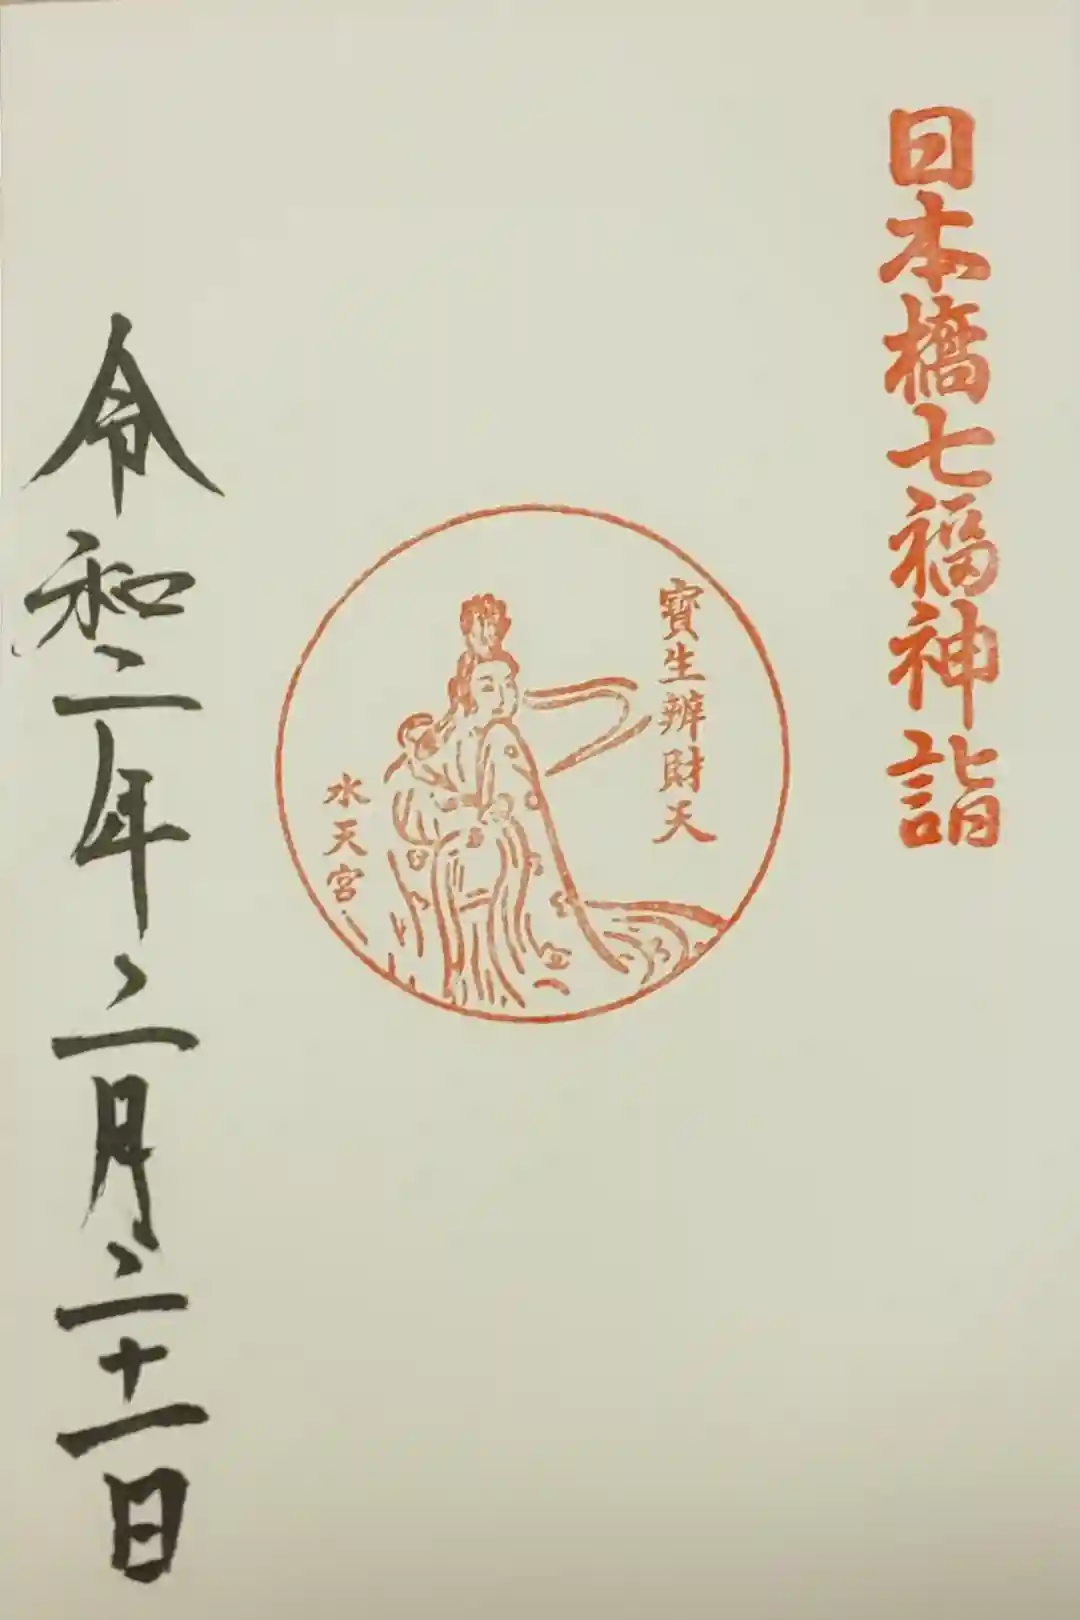 日本橋七福神詣
寶生辨財天
水天宮
令和二年二月二十一日